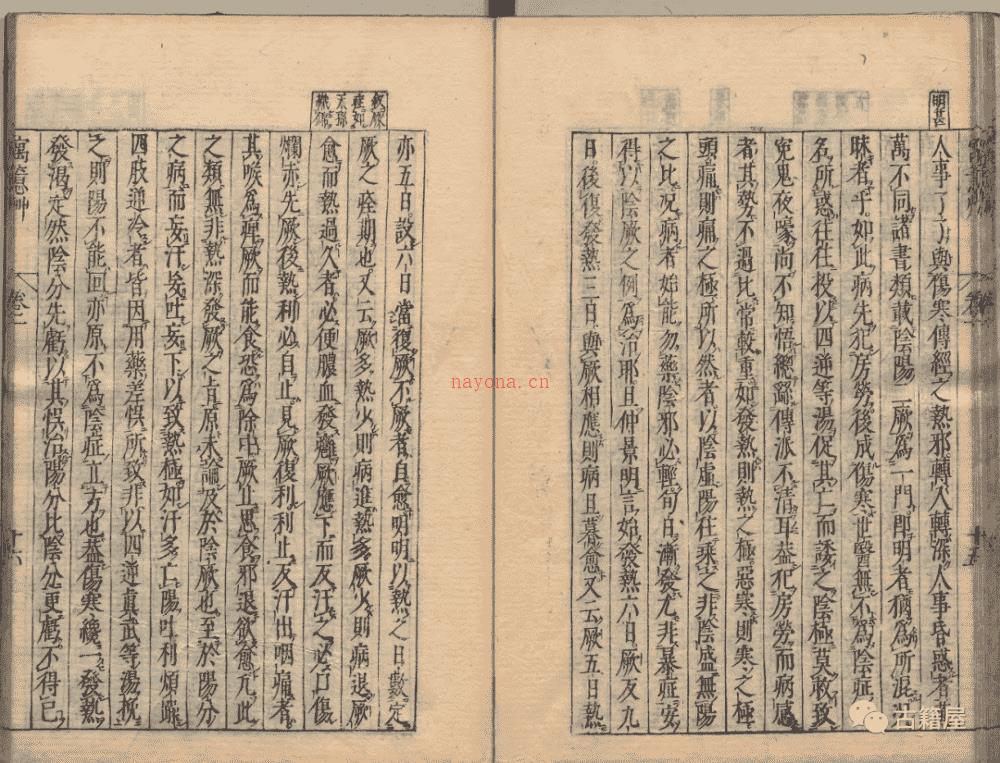 明甚
人事了了與傷寒傳經之熱邪轉入轉深人事昏惑者
萬不同諸書類載陰陽二厥為一門即明者猶為所混
昧者乎如此病先犯房勞後成傷寒世醫無不為陰症
名所惑往往投以四逆等湯促其亡而諉之陰極莫救致
冤鬼夜嚎尚不知悟總繇傳派不清耳蓋犯房勞而病感
者其勢不過比常較重如發熱則熱之極惡寒則寒之極
頭痛則痛之極所以然者以陰虛陽往乘之非陰盛無陽
之比況病者始能勿藥陰邪必輕旬日漸發尤非暴症安
得以陰厥之例為治耶且仲景明言始發熱六日厥反九
日後復發熱三日與厥相應則病旦暮愈又云厥五日熱
亦五日設六日當復厥不厥者自愈明明以熱之日數定
厥之痊期也又云厥多熱少則病進熱多厥少則病退厥
愈而熱過久者必便膿血發癰厥應下而反汗之必口傷
爛赤先厥後熱利必自止見厥復利利止反汗出咽痛者
其喉為痺厥而能食恐為除中厥止思食邪退欲愈凡此
之類無非熱深發厥之旨原未論及於陰厥也至於陽分
之病而妄汗妄吐妄下以致熱極如汗多亡陽吐利煩躁
四肢逆冷者皆因用藥差悞所致非以四逆真武等湯挽
之則陽不能回亦原不為陰症立方也蓋傷寒纔一發熱
發渴定然陰分先虧以其悞治陽分比陰分更虧不得已
寓意草
卷一
十六
十五
nayona.cn
古籍屋